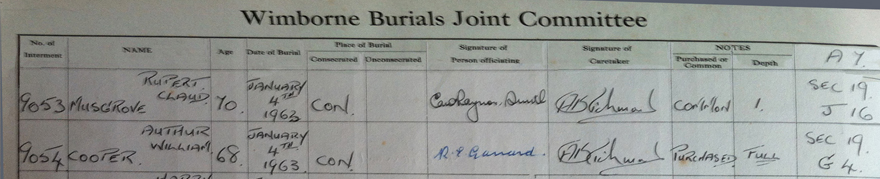 Wimborne Burials Joint Committee
No. of Interment NAME Age Date of Burial Place of Burial Consecrated Unconsecrated Signature of Person officiating Signature of Caretaker NOTES Purchased or Common Depth A Y.
9053 MUSGROVE RUPERT CLAUD 70. JANUARY 4TH 1963 CON. COMMON 1. SEC 19. J 16
9054 COOPER. AUTHUR WILLIAM 68. JANUARY 4TH 1963. CON. PURCHASED FULL SEC 19. G 4.